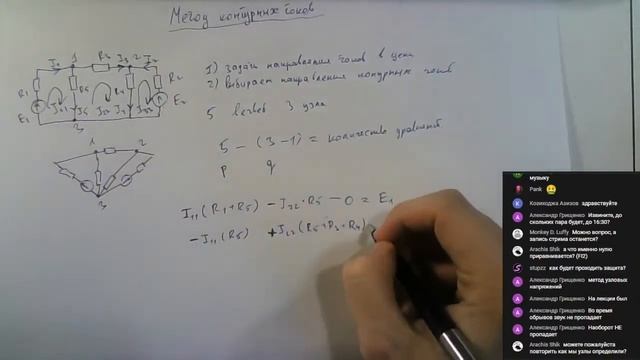 Метод контурных токов
1) Задать направления токов в цепи
2) Выбирает направления контурных токов
5 ветвей 3 узла
5 - (3-1) = количество уравнений
p q
I₁₁(R₁+R₅) - I₂₂·R₅ - 0 = E₁
- I₁₁(R₅) + I₂₂(R₅+R₃+R₄)
R₁
E₁
1
2
3
1
2
3
музыку
Pank
Козиходжа Азизов здравствуйте
Александр Грищенко Извините, до скольких пара будет, до 16:30?
Monkey D. Luffy Можно вопрос, а запись стрима останется?
Arachis Shik а что именно нулю приравнивается? (FI2)
stupzz как будет проходить защита?
Александр Грищенко метод узловых напряжений
Александр Грищенко На лекции был
Александр Грищенко Во время обрывов звук не пропадает
Александр Грищенко Наоборот НЕ пропадает
Arachis Shik можете пожалуйста повторить как мы узлы определили?